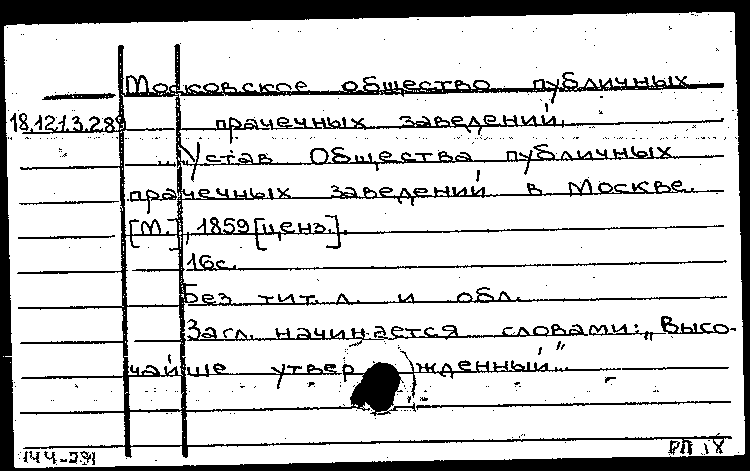 Московское общество публичных
18.121.3.289 прачечных заведений.
...Устав Общества публичных
прачечных заведений в Москве.
[М.], 1859 [ценз.].
16с.
Без тит. л. и обл.
Загл. начинается словами: „Высо-
чайше утвержденный"...
144-291